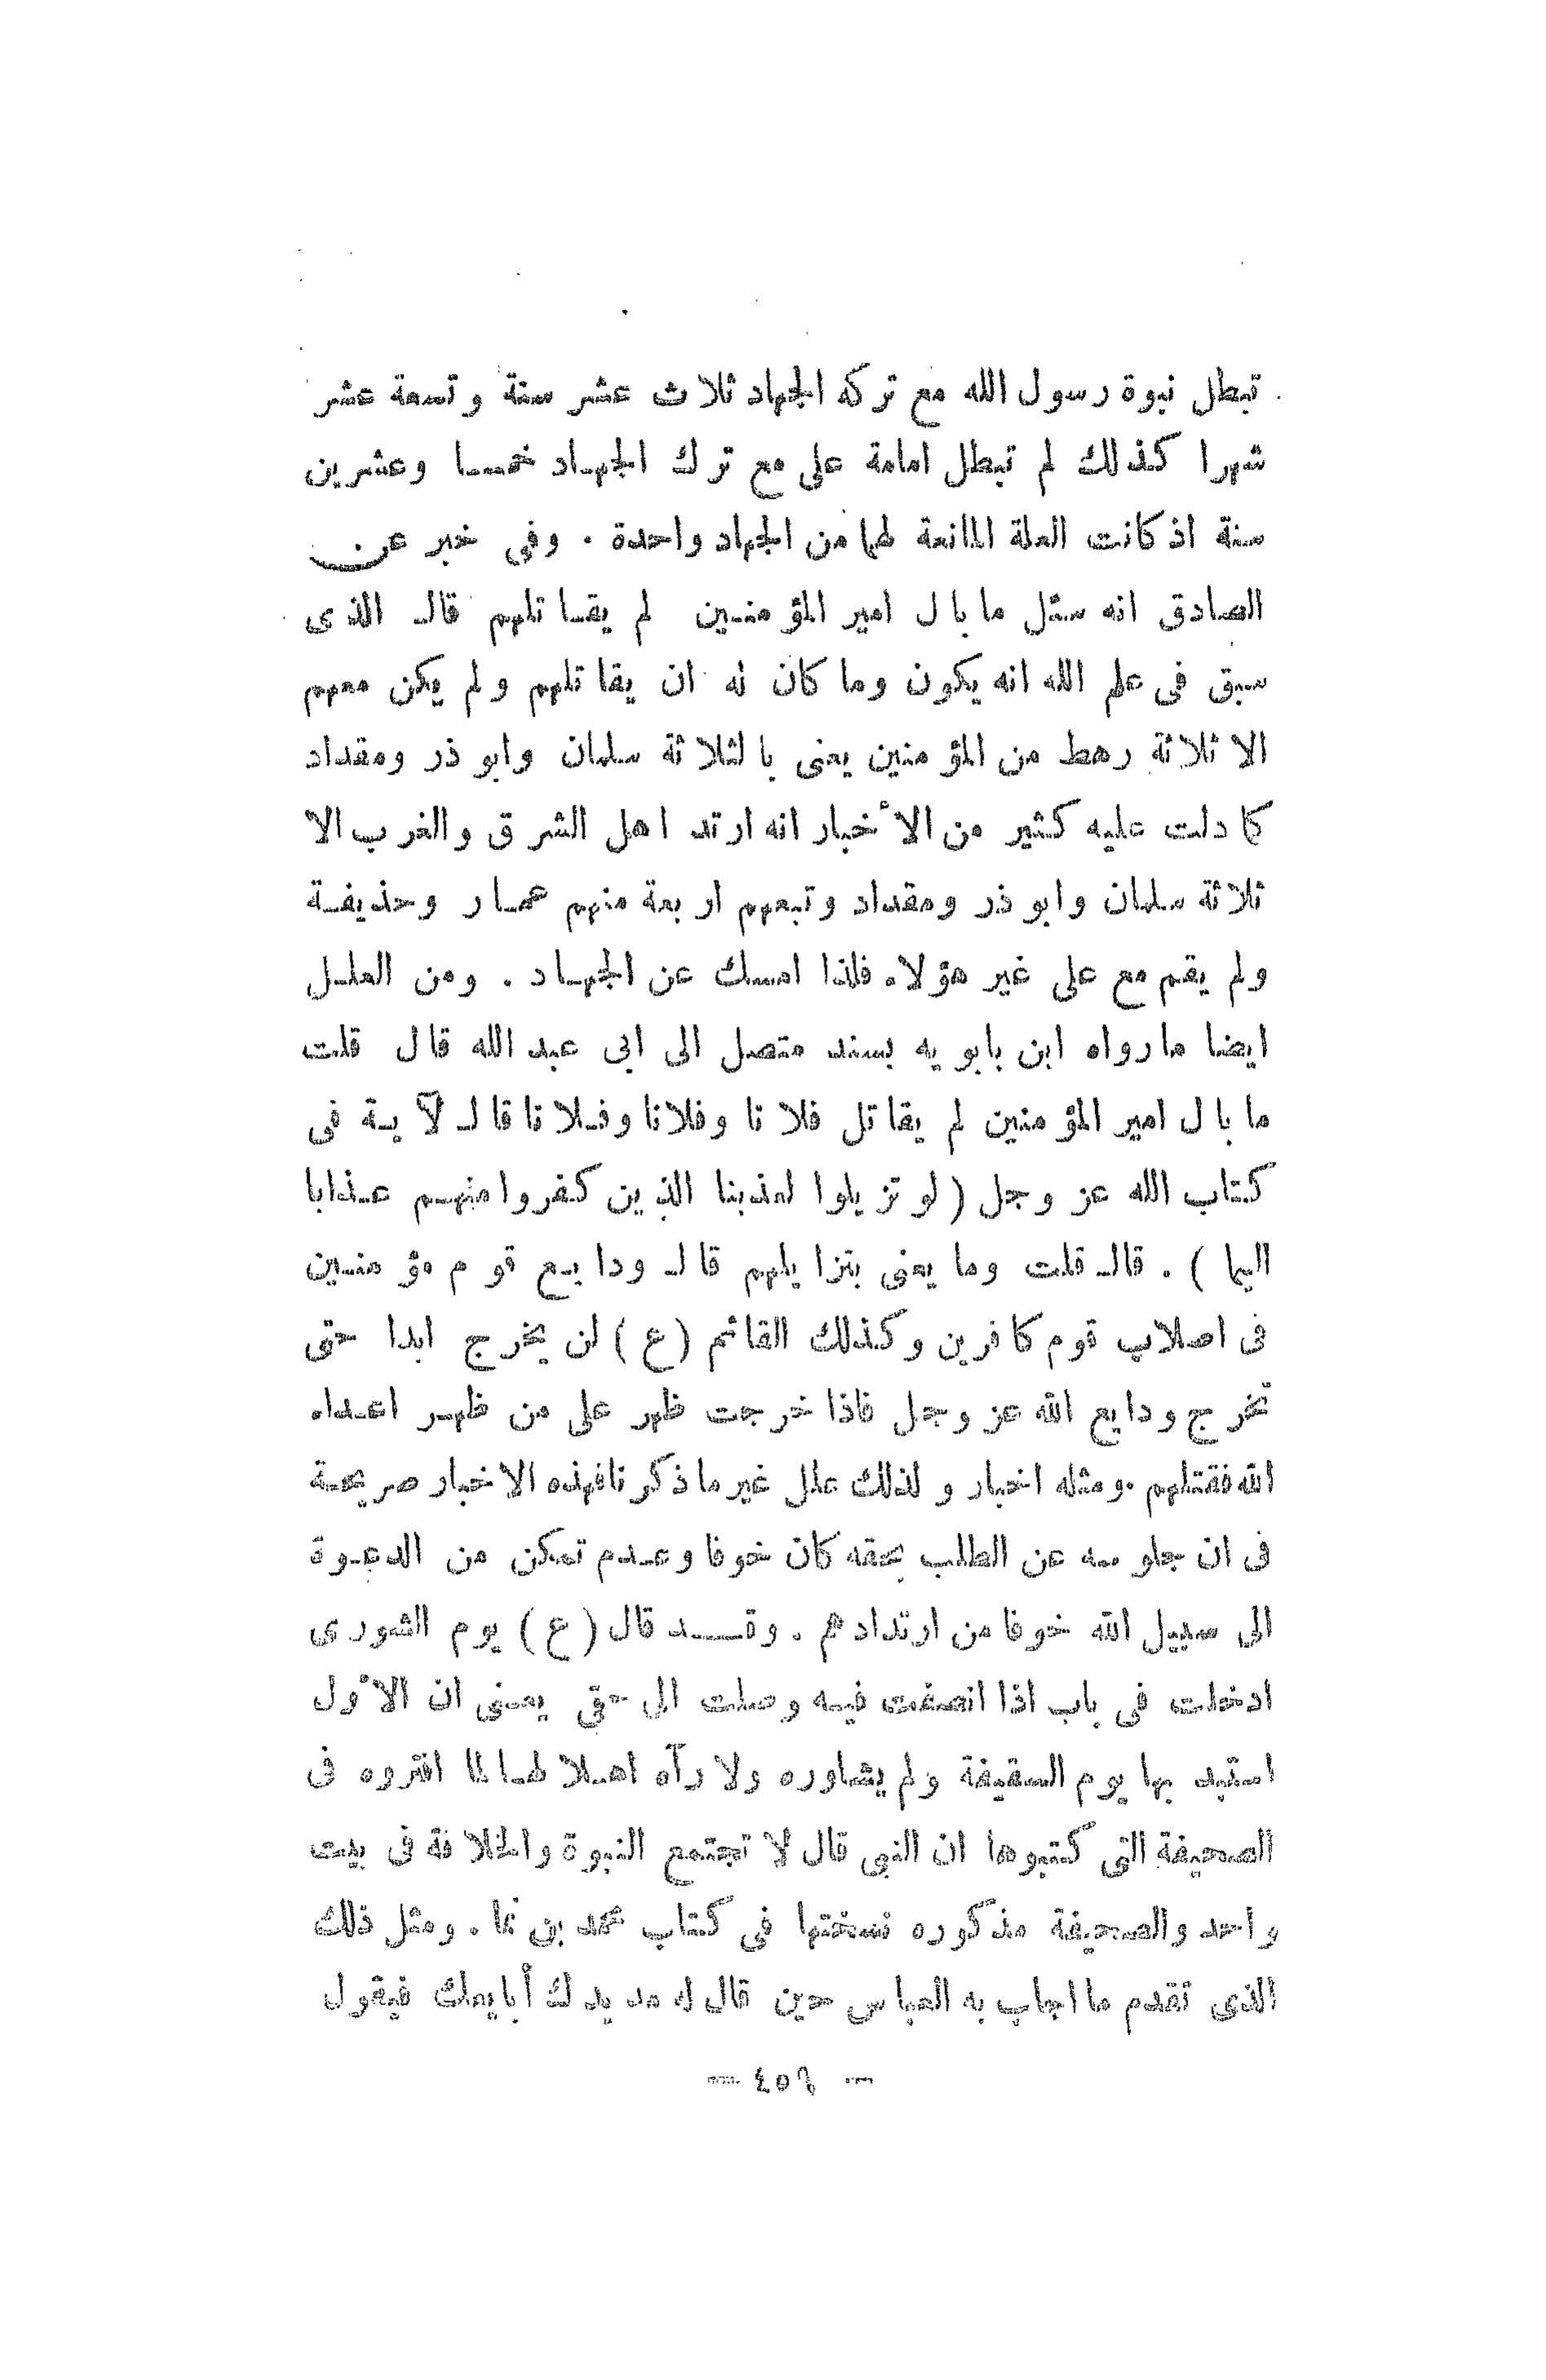 تبطل نبوة رسول الله مع تركه الجهاد ثلاث عشر سنة وتسعة عشر
شهرا كذلك لم تبطل امامة علي مع ترك الجهاد خمسا وعشرين
سنة اذ كانت العلة المانعة لهما من الجهاد واحدة . وفى خبر عن
الصادق انه سئل ما بال امير المؤمنين لم يقاتلهم قال الذى
سبق فى علم الله انه يكون وما كان له ان يقاتلهم ولم يكن معهم
الا ثلاثة رهط من المؤمنين يعنى بالثلاثة سلمان وابو ذر ومقداد
كما دلت عليه كثير من الأخبار انه ارتد اهل الشرق والغرب الا
ثلاثة سلمان وابو ذر ومقداد وتبعهم اربعة منهم عمار وحذيفة
ولم يقم مع علي غير هؤلاء فلذا امسك عن الجهاد . ومن العلل
ايضا ما رواه ابن بابويه بسند متصل الى ابى عبد الله قال قلت
ما بال امير المؤمنين لم يقاتل فلانا وفلانا وفلانا قال لآية فى
كتاب الله عز وجل ( لو تزيلوا لعذبنا الذين كفروا منهم عذابا
اليما ) . قال قلت وما يعنى بتزايلهم قال ودايع قوم مؤمنين
فى اصلاب قوم كافرين وكذلك القائم (ع) لن يخرج ابدا حتى
تخرج ودايع الله عز وجل فاذا خرجت ظهر على من ظهر اعداء
الله فقتلهم . ومثله اخبار ولذلك علل غير ما ذكرنا فهذه الاخبار صريحة
فى ان جلوسه عن الطلب بحقه كان خوفا وعدم تمكن من الدعوة
الى سبيل الله خوفا من ارتدادهم . وقد قال (ع) يوم الشورى
ادخلت فى باب اذا انصفت فيه وصلت الى حقي يعنى ان الأول
استبد بها يوم السقيفة ولم يشاوره ولا رآه اهلا لها لما افتروه فى
الصحيفة التى كتبوها ان النبى قال لا تجتمع النبوة والخلافة فى بيت
واحد والصحيفة مذكوره نسختها فى كتاب محمد بن نما . ومثل ذلك
الذى تقدم ما اجاب به العباس حين قال له مد يدك أبايعك فيقول
— ٤٥٦ —